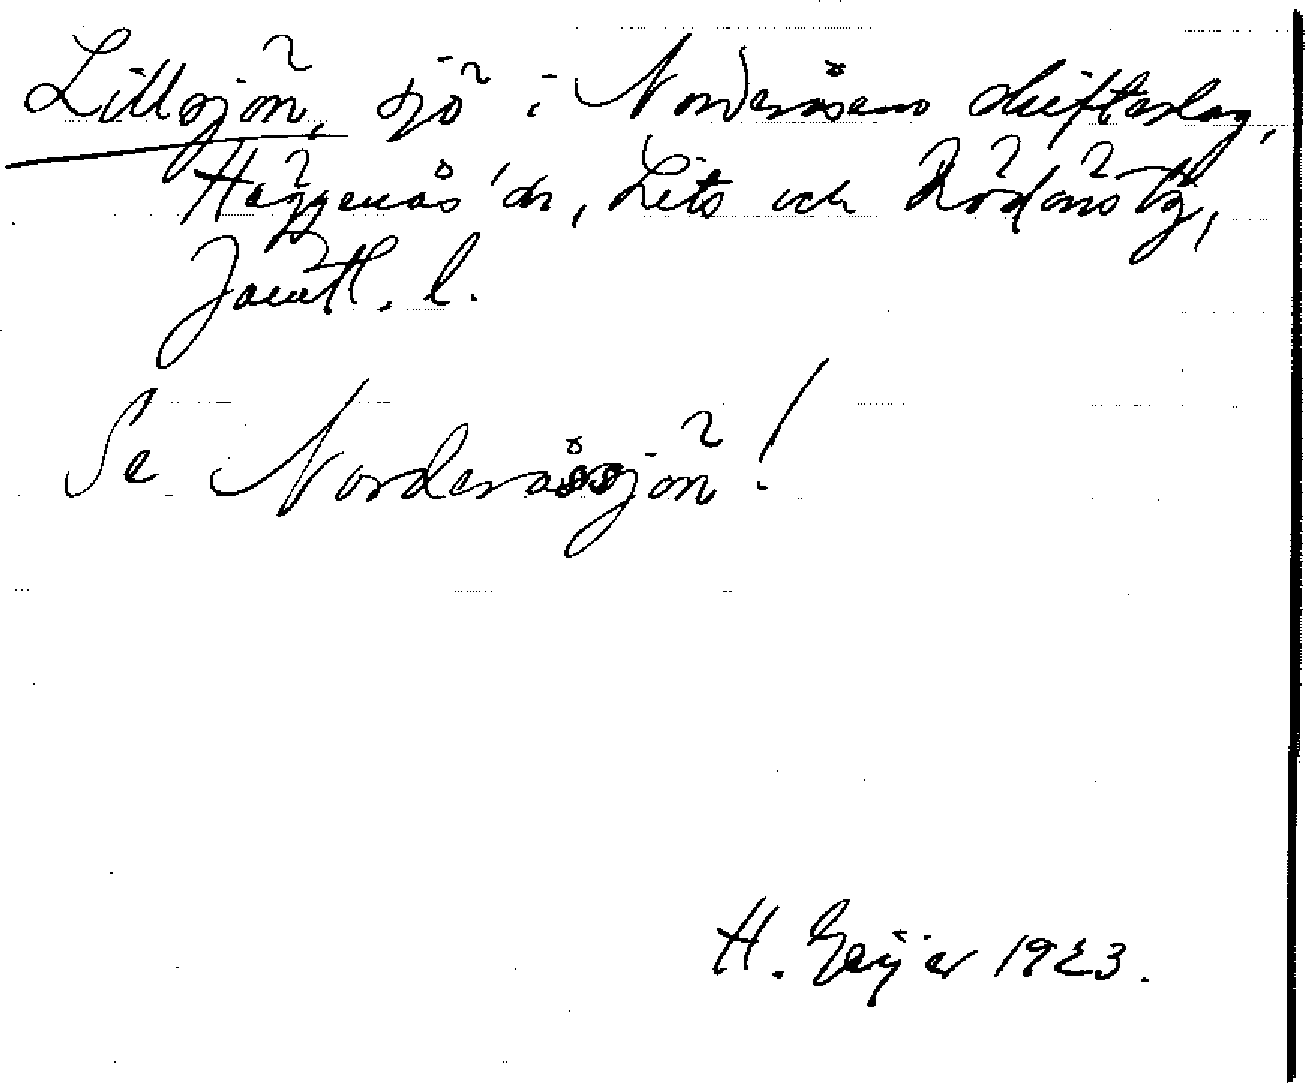 Lillsjön, sjö i Norderåsens skifteslag,
Häggenås sn, Lits och Rödöns tg,
Jämtl. l.
Se Norderåssjön!
H. Geijer 1923.